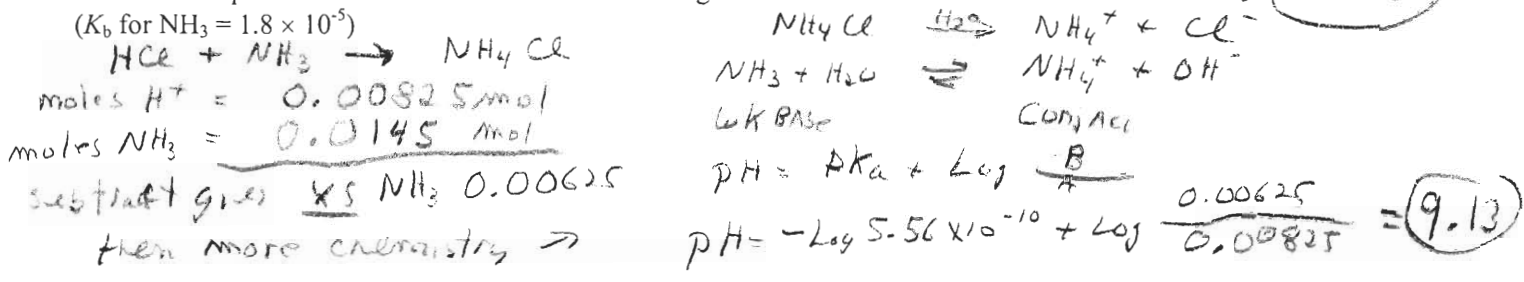 (K_b for NH₃ = 1.8 × 10⁻⁵)
HCl + NH₃ → NH₄Cl
moles H⁺ = 0.00825 mol
moles NH₃ = 0.0145 mol
subtract gives XS NH₃ 0.00625
then more chemistry →
NH₄Cl H₂O→ NH₄⁺ + Cl⁻
NH₃ + H₂O ⇌ NH₄⁺ + OH⁻
WK BAse Conj Aci
pH = pKa + Log B/A
pH = -Log 5.56 x10⁻¹⁰ + Log 0.00625/0.00825 = 9.13